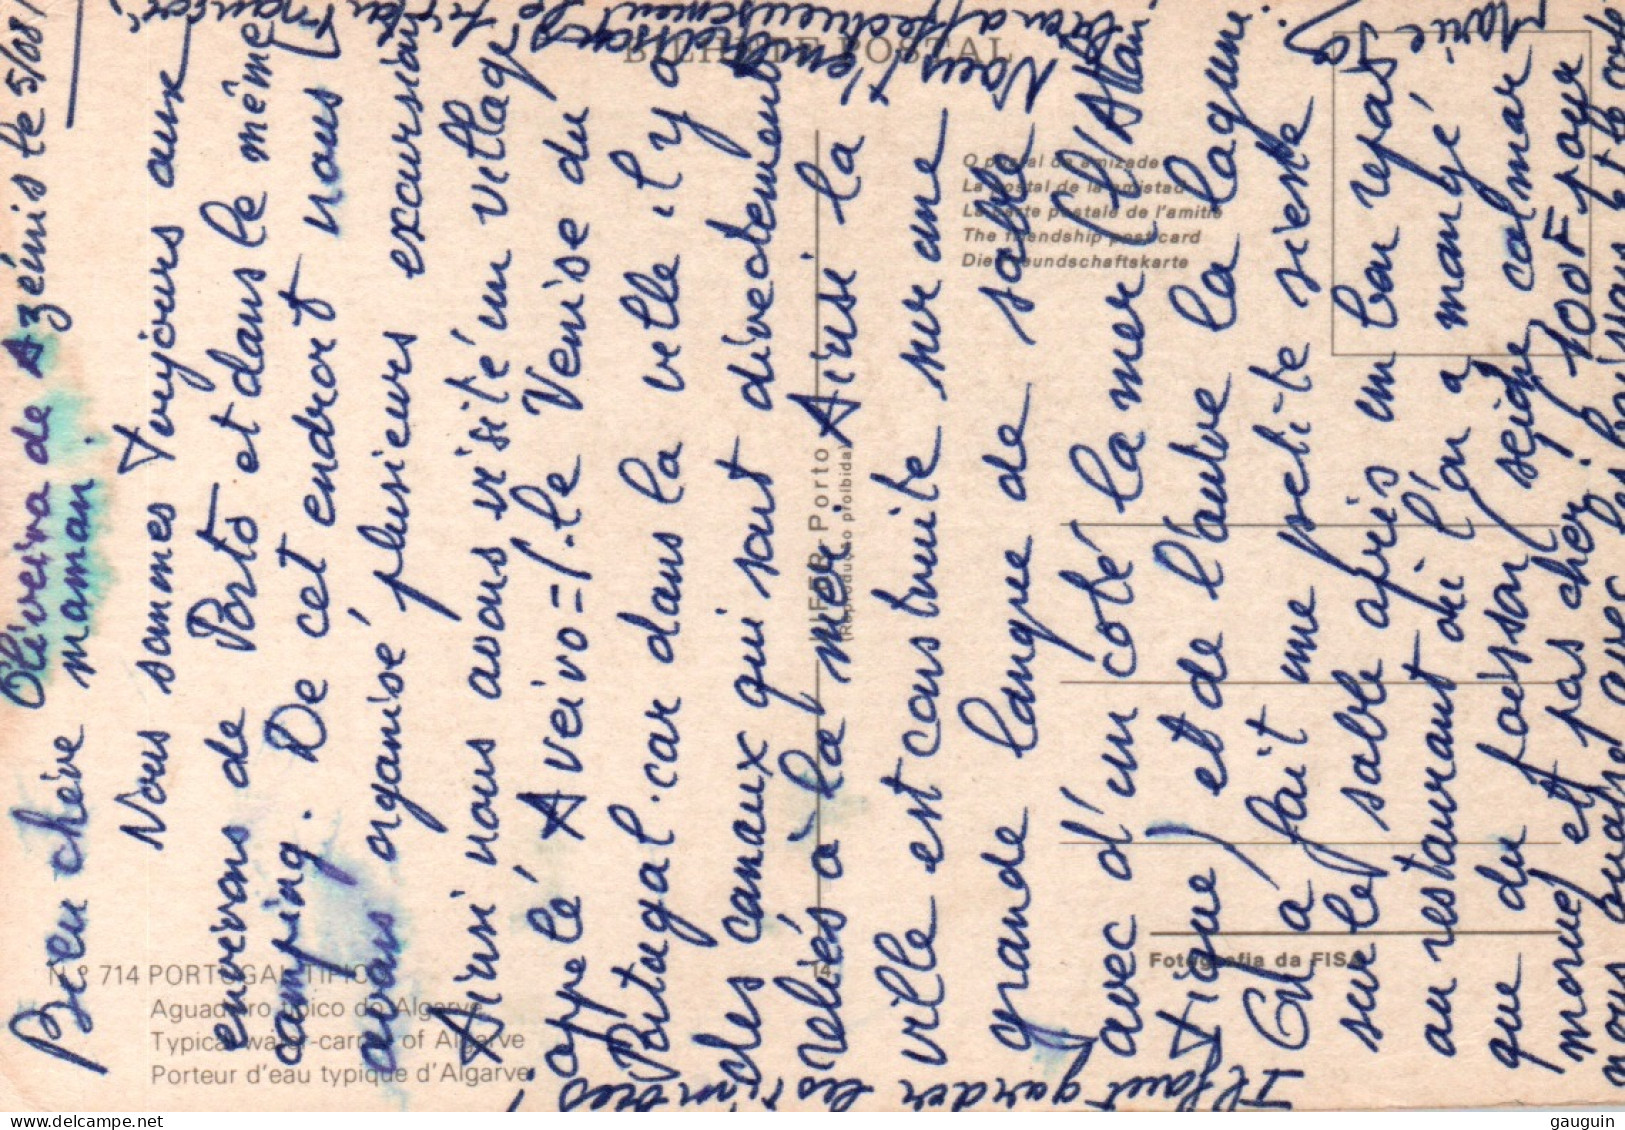 Oliveira de Azémis le 5/08/
Bien chère maman.
Nous sommes toujours aux
environs de Porto et dans le même
camping. De cet endroit nous
avons organisé plusieurs excursions
Ainsi nous avons visité un village
appelé Aveiro = / . le Venise du
Portugal. car dans la ville il y a
des canaux qui sont directement
reliés à la mer. Ainsi la
ville est construite sur une
grande langue de sable
avec d'un coté la mer (l'Atlan
tique) et de l'autre la lagune.
On a fait une petite sieste
sur le sable après un bon repas
au restaurant où l'on a mangé
que du poisson (seiche calmar
morue) et pas cher; 100F pour
nous quatre avec les boissons et le
Nous t'em
bien affectueusement
Marie Jo
Il faut garder les timbres!
BILHETE POSTAL
O postal da amizade
La postal de la amistad
La carte postale de l'amitié
The friendship post card
Die Freundschaftskarte
LIFER - Porto
(Reprodução proibida)
14
Fotografia da FISA
N.º 714 PORTUGAL TIPICO
Aguadeiro típico do Algarve
Typical water-carrier of Algarve
Porteur d'eau typique d'Algarve
gauguin / www.delcampe.net